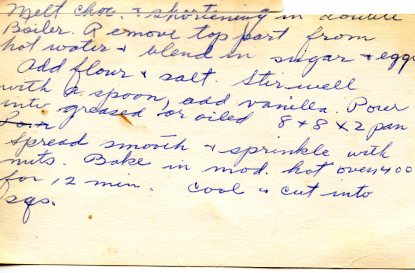 Melt choc. & shortening in double
Boiler. Remove top part from
hot water & blend in sugar & eggs
Add flour & salt. Stir well
with a spoon, add vanilla. Pour
into greased or oiled 8 x 8 x 2 pan
Spread smooth & sprinkle with
nuts. Bake in mod. hot oven 400
for 12 min. Cool & cut into
sqs.